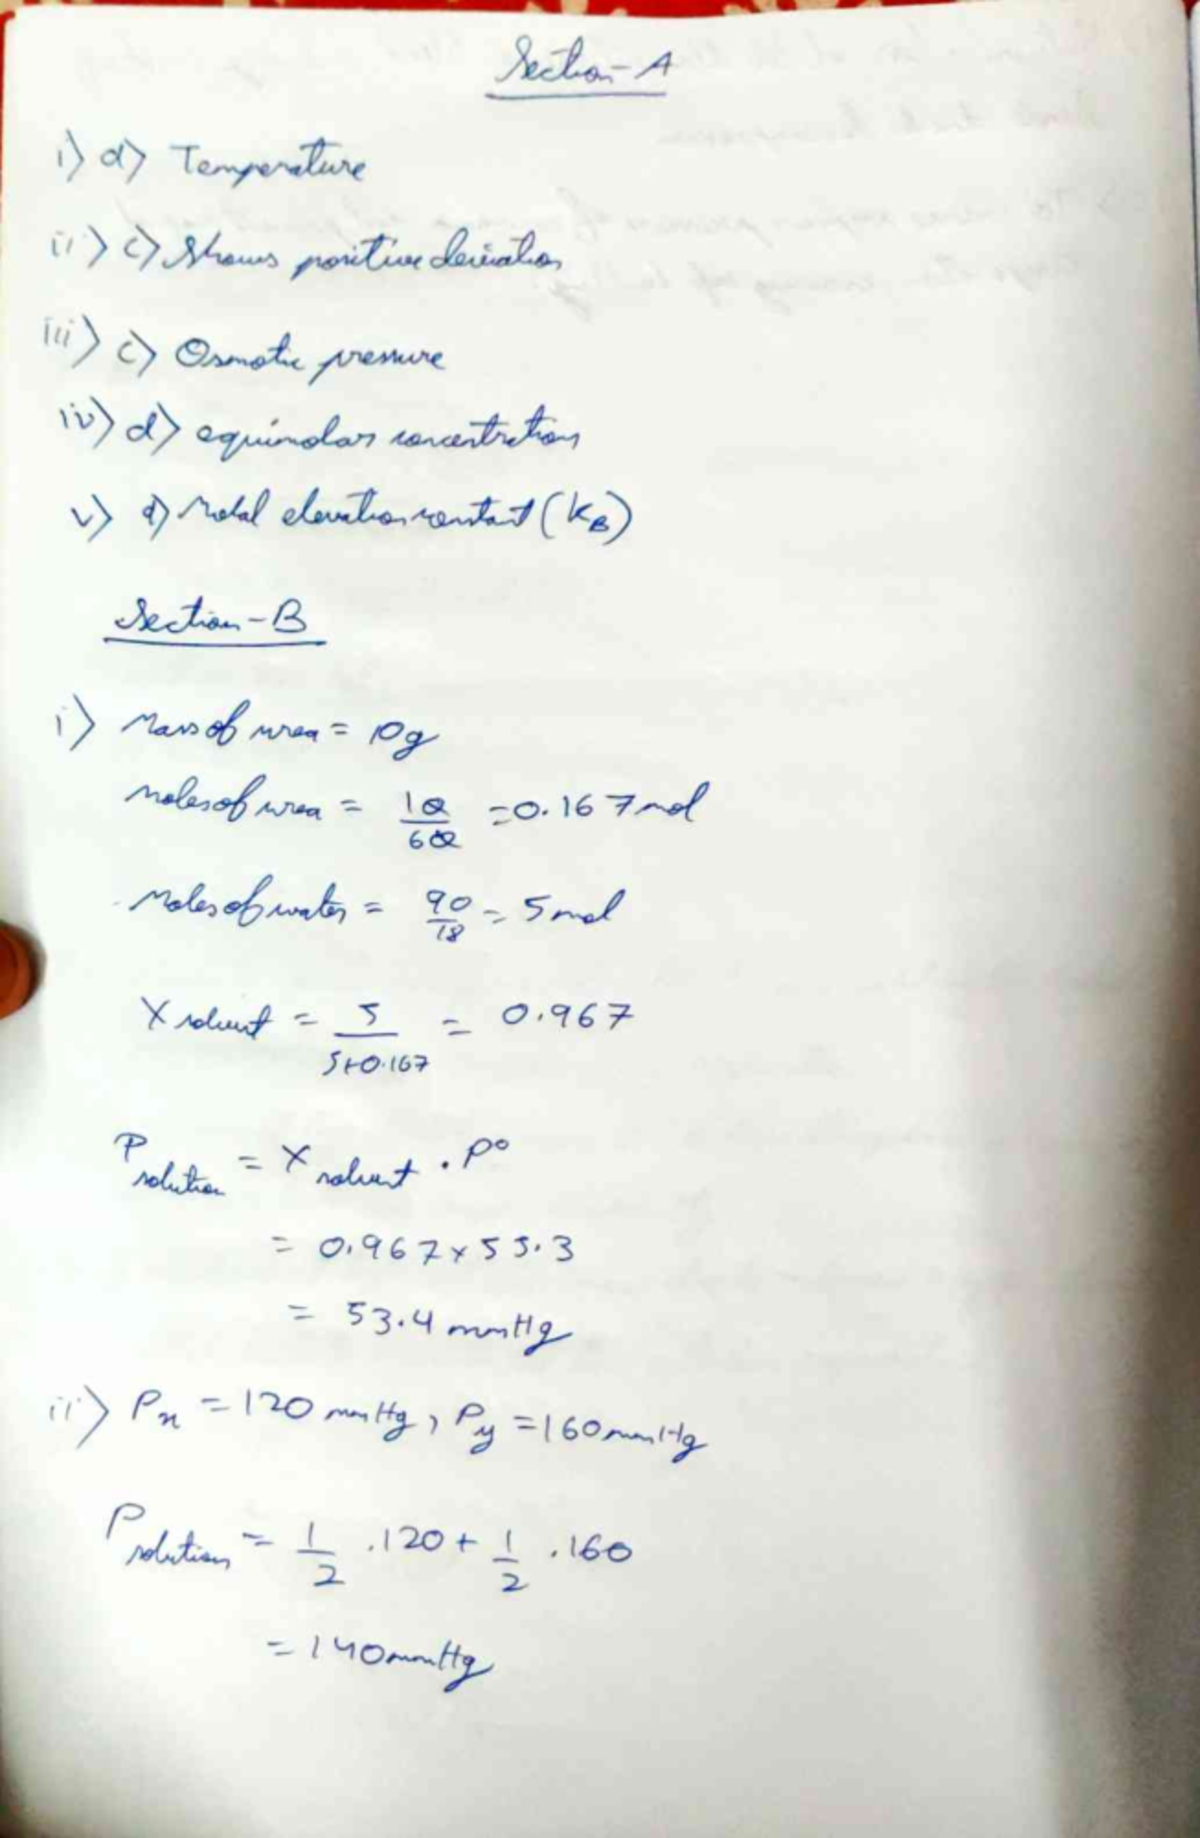 Section-A
i) d) Temperature
ii) c) Shows positive deviation
iii) c) Osmotic pressure
iv) d) equimolar concentration
v) d) Molal elevation constant (KB)
Section-B
i) Mass of urea = 10g
Moles of urea = 10/60 = 0.167 mol
Moles of water = 90/18 = 5 mol
X solvent = 5/5+0.167 = 0.967
P solution = X solvent . P°
= 0.967 x 55.3
= 53.4 mmHg
ii) Px = 120 mmHg, Py = 160 mmHg
P solution = 1/2 .120 + 1/2 .160
= 140 mmHg